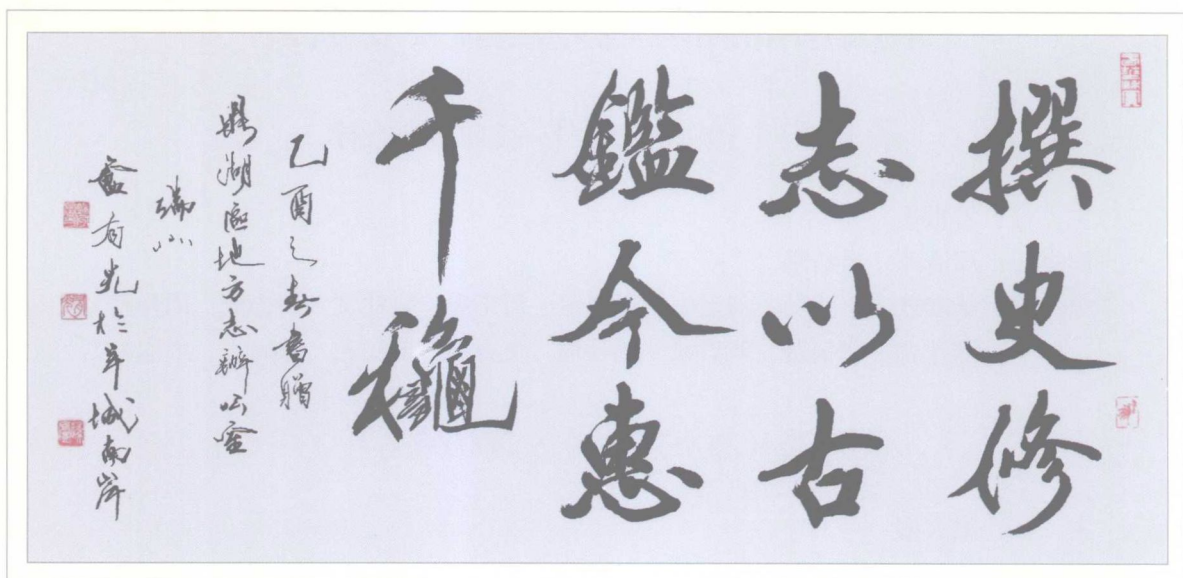 撰史修
志以古
鑑今惠
千穐
乙酉之春書贈
鼎湖區地方志辦公室
盧有光於羊城南岸